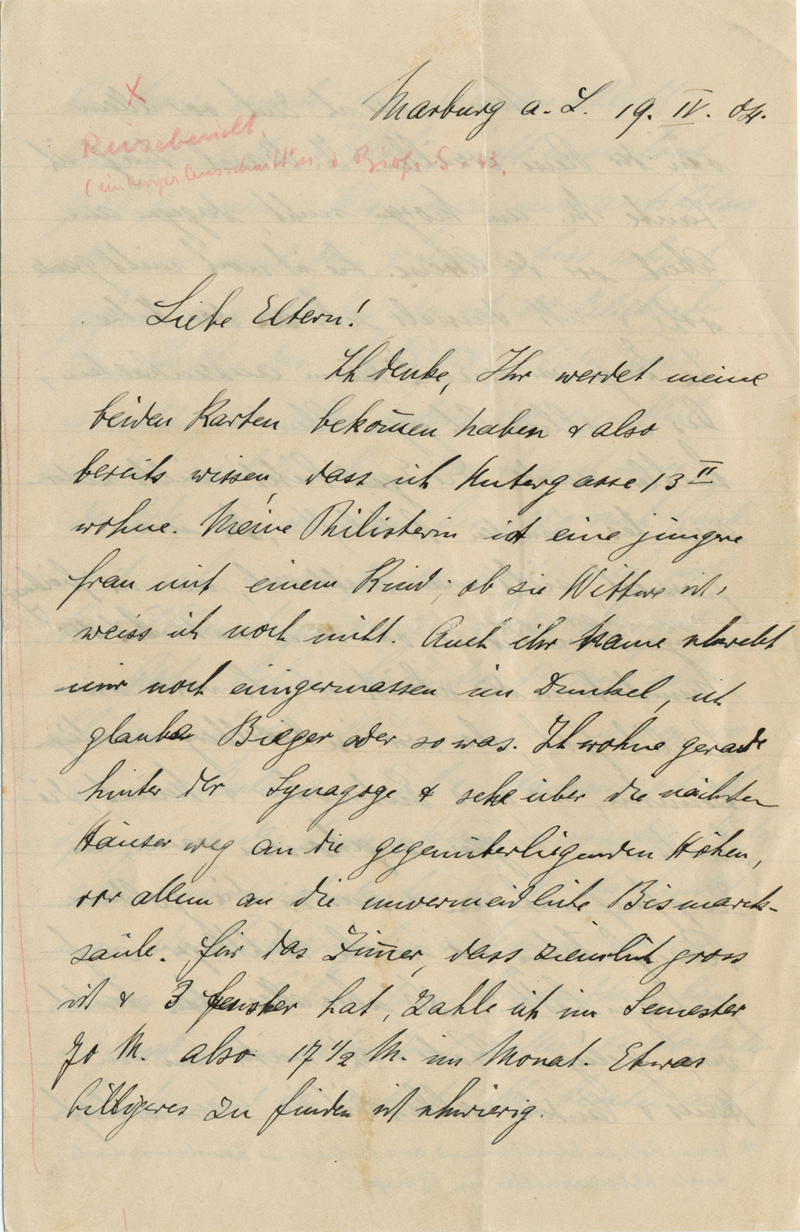 Marburg a. L. 19. IV. 04.
X
Reisebericht.
(einiger Ausschnitt in d. Biogr. S. 43.
Liebe Eltern!
Ich denke, Ihr werdet meine
beiden Karten bekom̄en haben & also
bereits wissen, dass ich Untergasse 13 II
wohne. Meine Philisterin ist eine jüngere
Frau mit einem Kind; ob sie Wittwe ist,
weiss ich noch nicht. Auch ihr Name schwebt
mir noch einigermassen im Dunkel, ich
glaube Bieger oder so was. Ich wohne gerade
hinter der Synagoge & sehe über die nächsten
Häuser weg an die gegenüberliegenden Höhen,
vor allem an die unvermeidliche Bismarck-
säule. Für das Zim̄er, dass ziemlich gross
ist & 3 Fenster hat, zahle ich im Semester
70 M. also 17 1/2 M. im Monat. Etwas
billigeres zu finden ist schwierig.